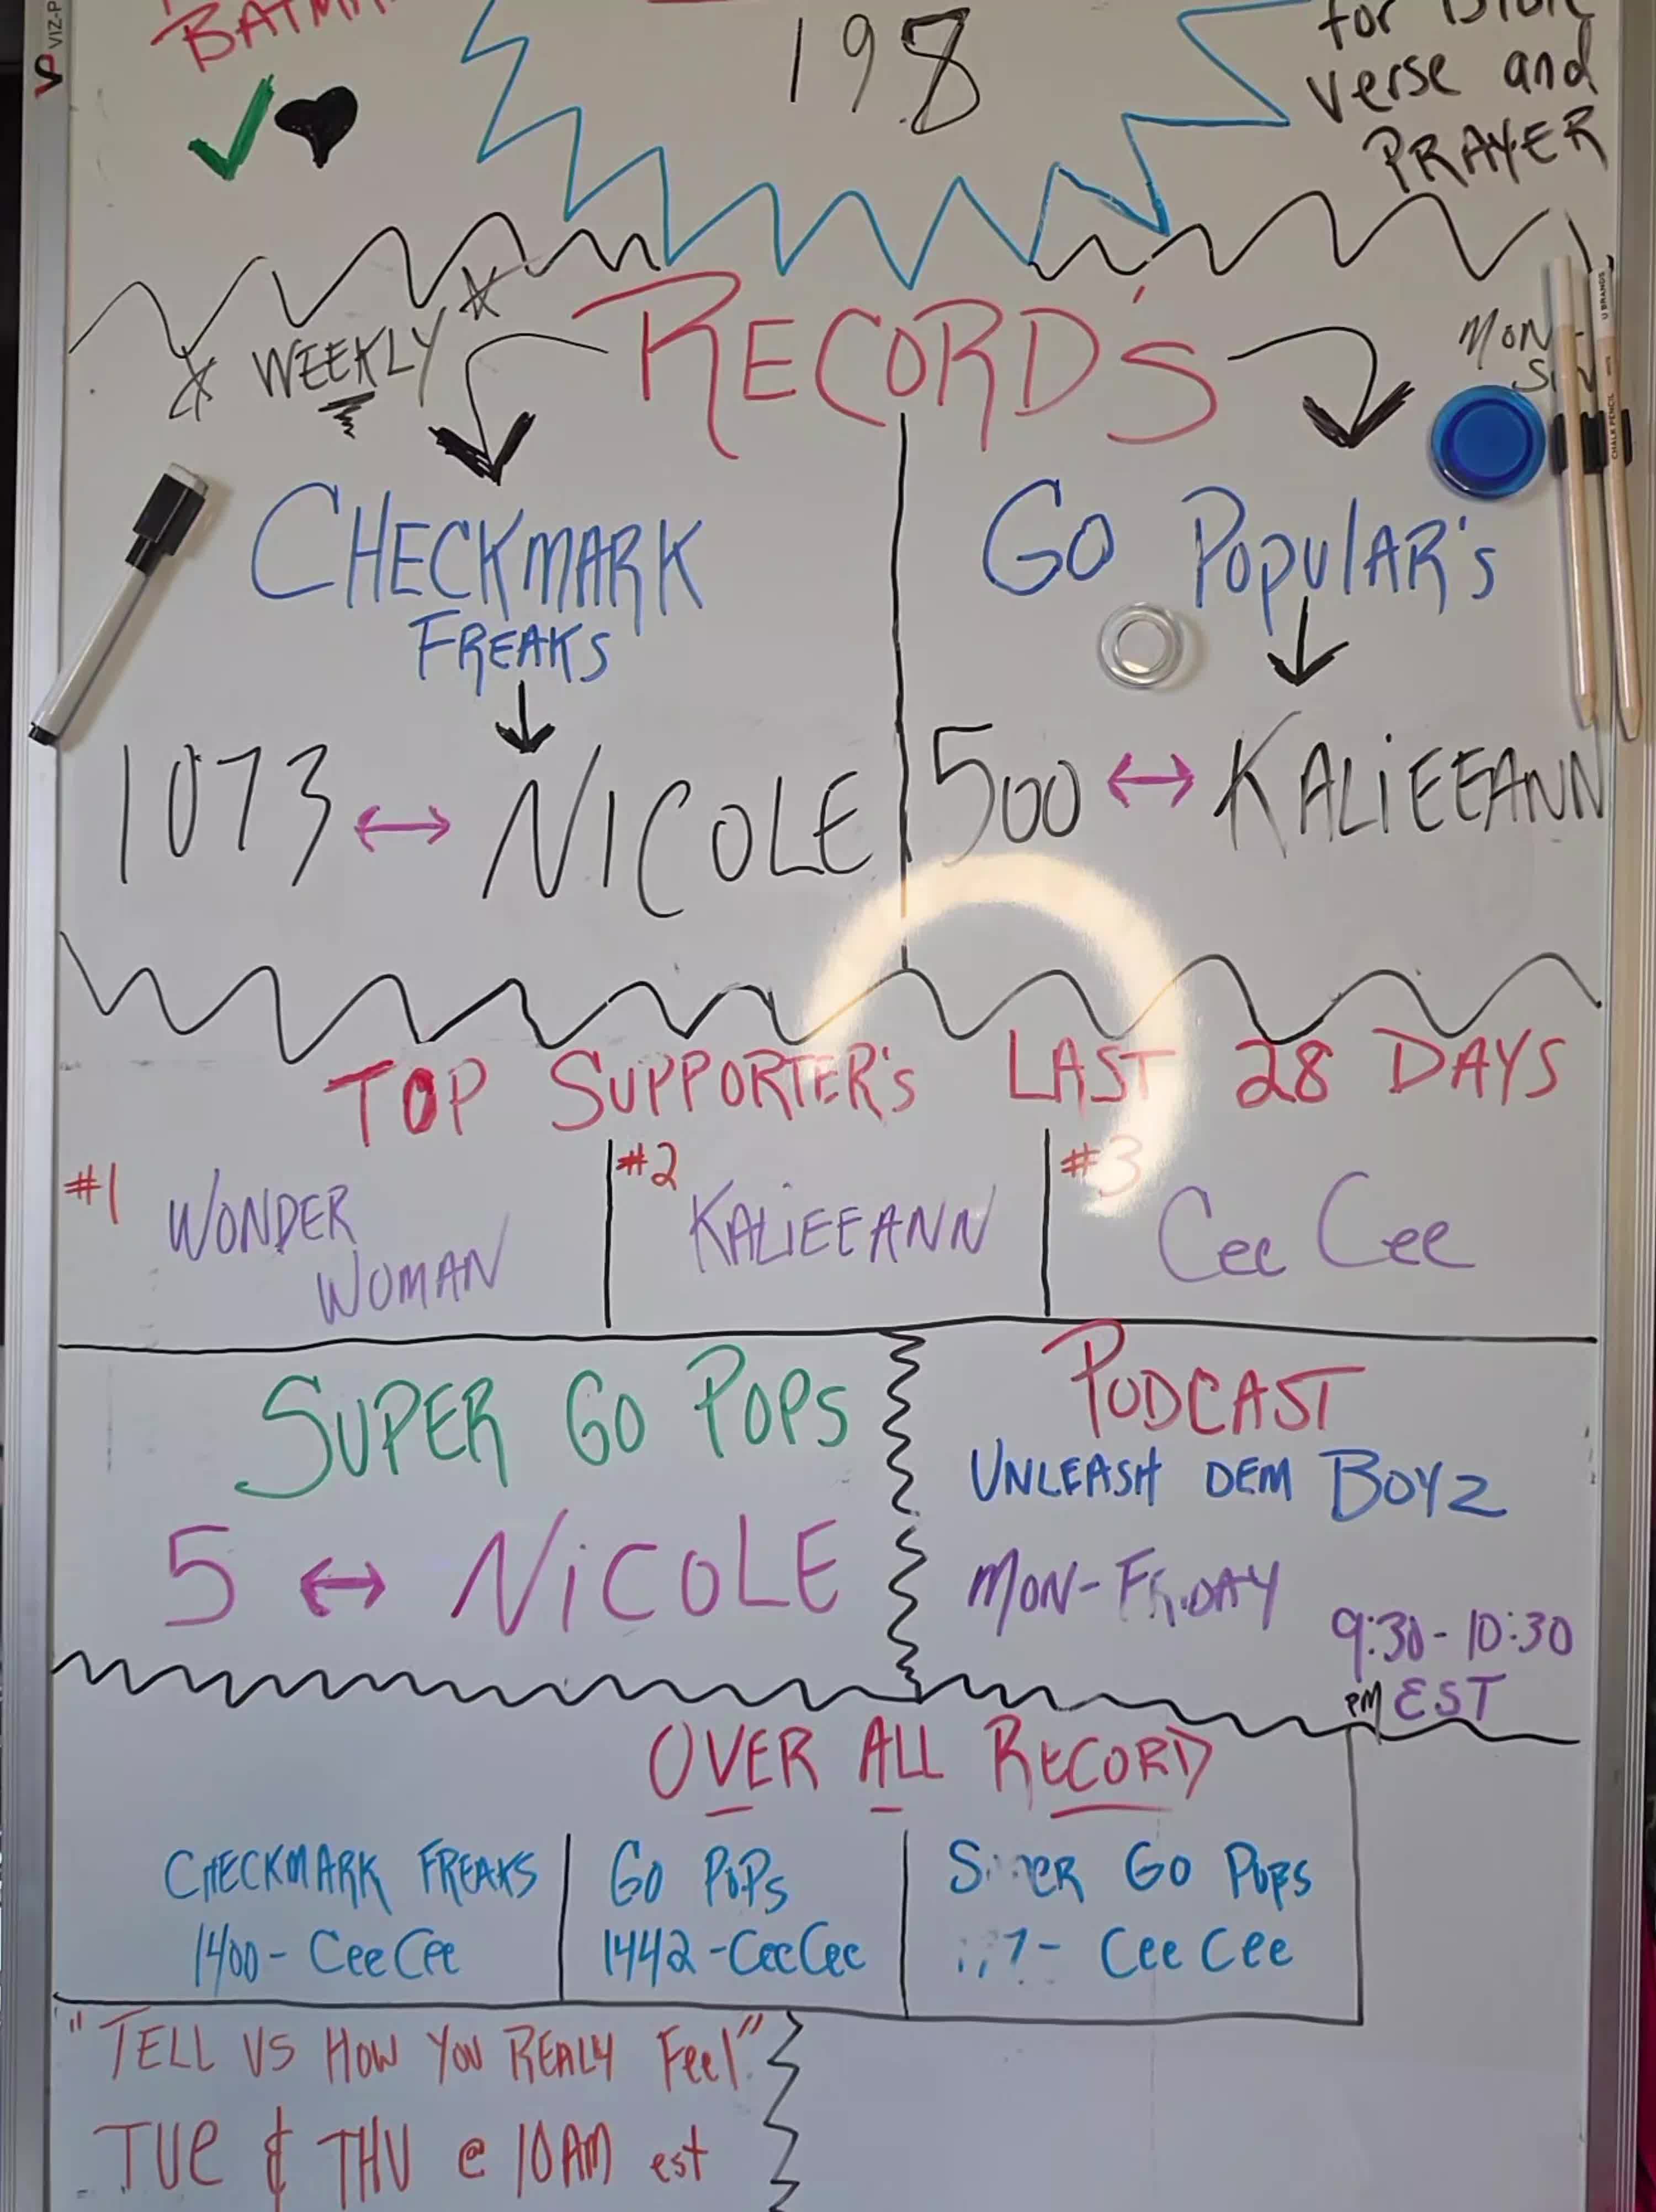 BATMA
198
for
verse and
PRAYER
VIZ-P
* WEEKLY *
RECORD'S
MON-
CHECKMARK
FREAKS
GO POPULAR's
1073 ↔ NICOLE
500 ↔ KALiEEANN
U BRANDS
CHALK PENCIL
TOP SUPPORTER's LAST 28 DAYS
#1 WONDER
WOMAN
#2 KALiEEANN
#3 Cee Cee
SUPER GO POPS
5 ↔ NiCOLE
PODCAST
UNLEASH DEM BOYZ
MON-FRiDAY
9:30-10:30
PM EST
OVER ALL RECORD
CHECKMARK FREAKS
1400- CeeCee
GO POPS
1442-CeeCee
GO POPS
7- Cee Cee
"TELL US HOW YOU REALLY Feel"
TUE & THU @ 10AM est